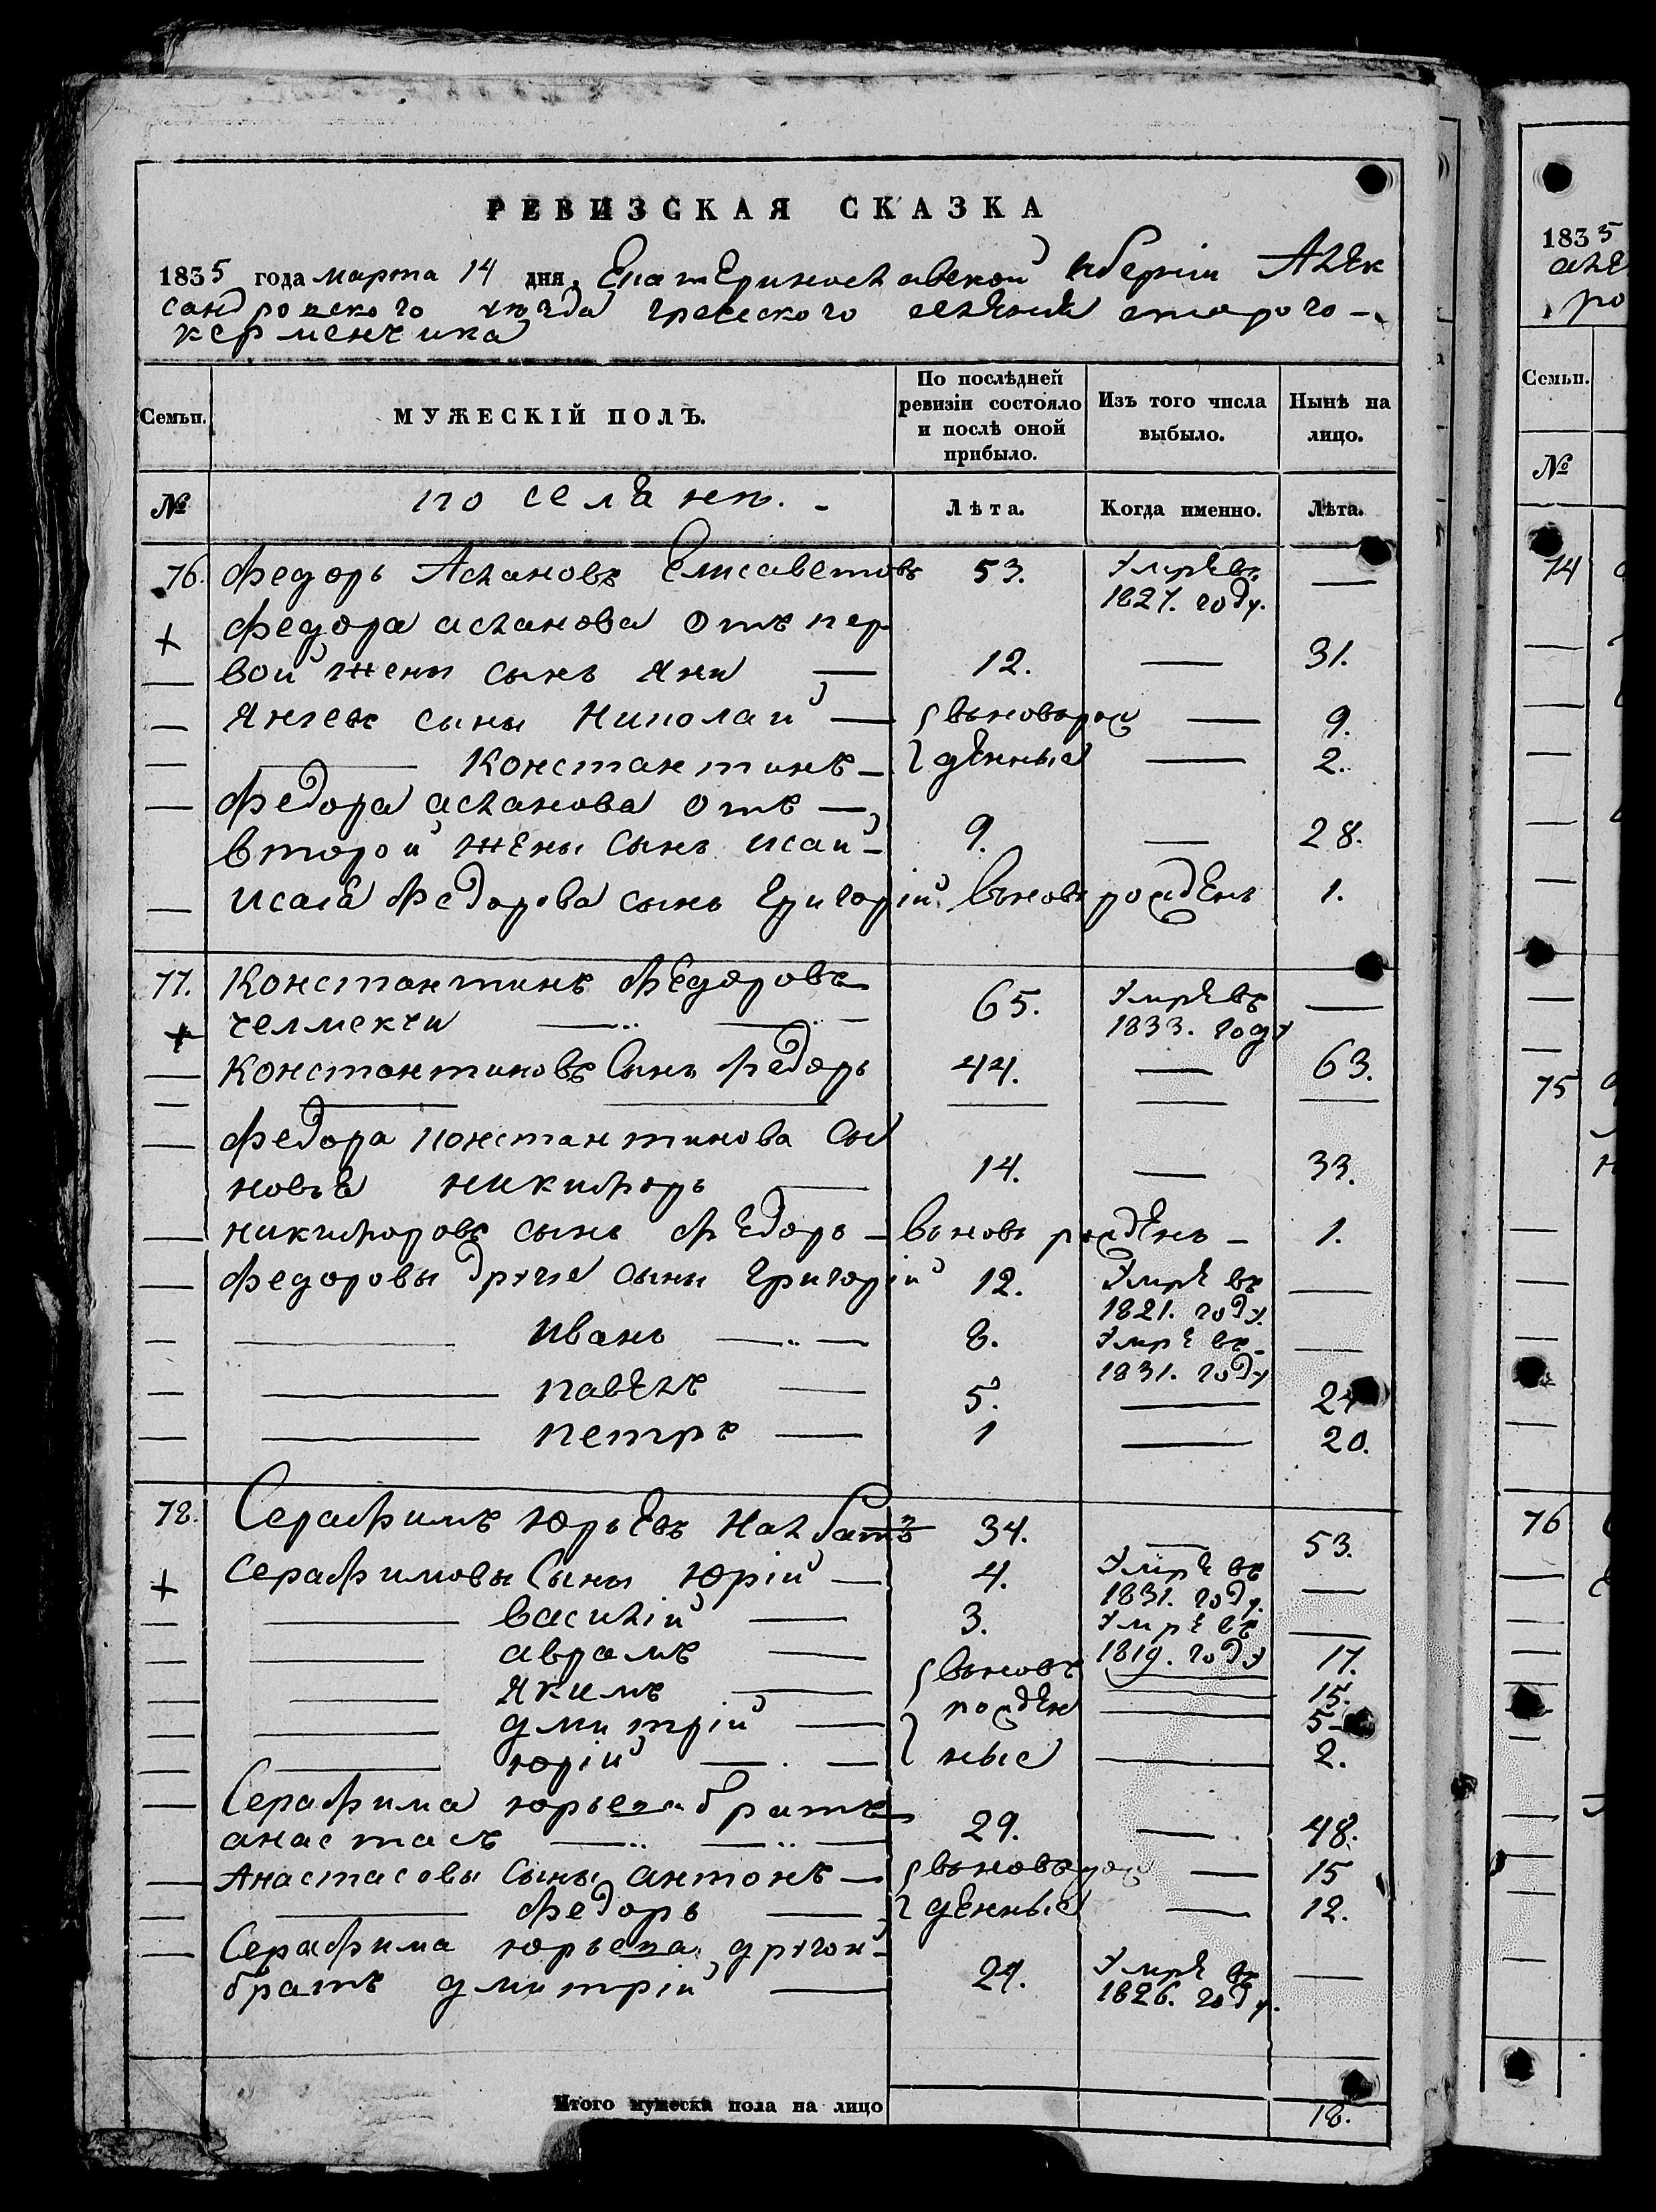 РЕВИЗСКАЯ СКАЗКА
1835 года марта 14 дня. Екатеринославской губерніи Алек
сандровского уѣзда греческого селенія старого —
керменчика
Семьи. МУЖЕСКІЙ ПОЛЪ. По послѣдней ревизіи состояло и послѣ оной прибыло. Изъ того числа выбыло. Нынѣ на лицо.
№ поселянъ. Лѣта. Когда именно. Лѣта.
76. Федоръ Аслановъ Елисаветовъ 53. Умре въ 1827. году. —
Федора асланова отъ пер
вой жены сынъ Яни — 12. — 31.
Янгевъ сыны Николай — вновьрож — 9.
— Константинъ — денные — 2.
Федора асланова отъ —
второй жены сынъ исай — 9. — 28.
Исаія Федорова сынъ Григорій вновь рожденъ 1.
77. Константинъ Федоровъ
челмекчи — 65. Умре въ 1833. году —
Константиновъ Сынъ Федоръ 44. — 63.
Федора константинова Сы
новья никифоръ — 14. — 33.
никифоровъ сынъ Федоръ — вновь рожденъ — 1.
Федоровы другіе сыны Григорій 12. Умре въ 1821. году. —
— иванъ — 8. Умре въ 1831. году —
— павелъ — 5. — 24
— петръ — 1 — 20.
78. Серафимъ юрьевъ Налбатъ 34. — 53.
Серафимовы Сыны Юрій — 4. Умре въ 1831. году. —
— василій — 3. Умре въ 1819. году —
— аврамъ — вновь 17.
— Якимъ — рожден — 15.
— дмитрій — 5
— юрій — ные — 2.
Серафима юрьева братъ
анастасъ — 29. — 48.
Анастасовы Сыны антонъ — вновьрож — 15
— Федоръ — денные — 12.
Серафима юрьева другой
братъ дмитрій — 24. Умре въ 1826. году. —
Итого мужеска пола на лицо 18.
1835
але
ро
Семьи.
№
74
75
76